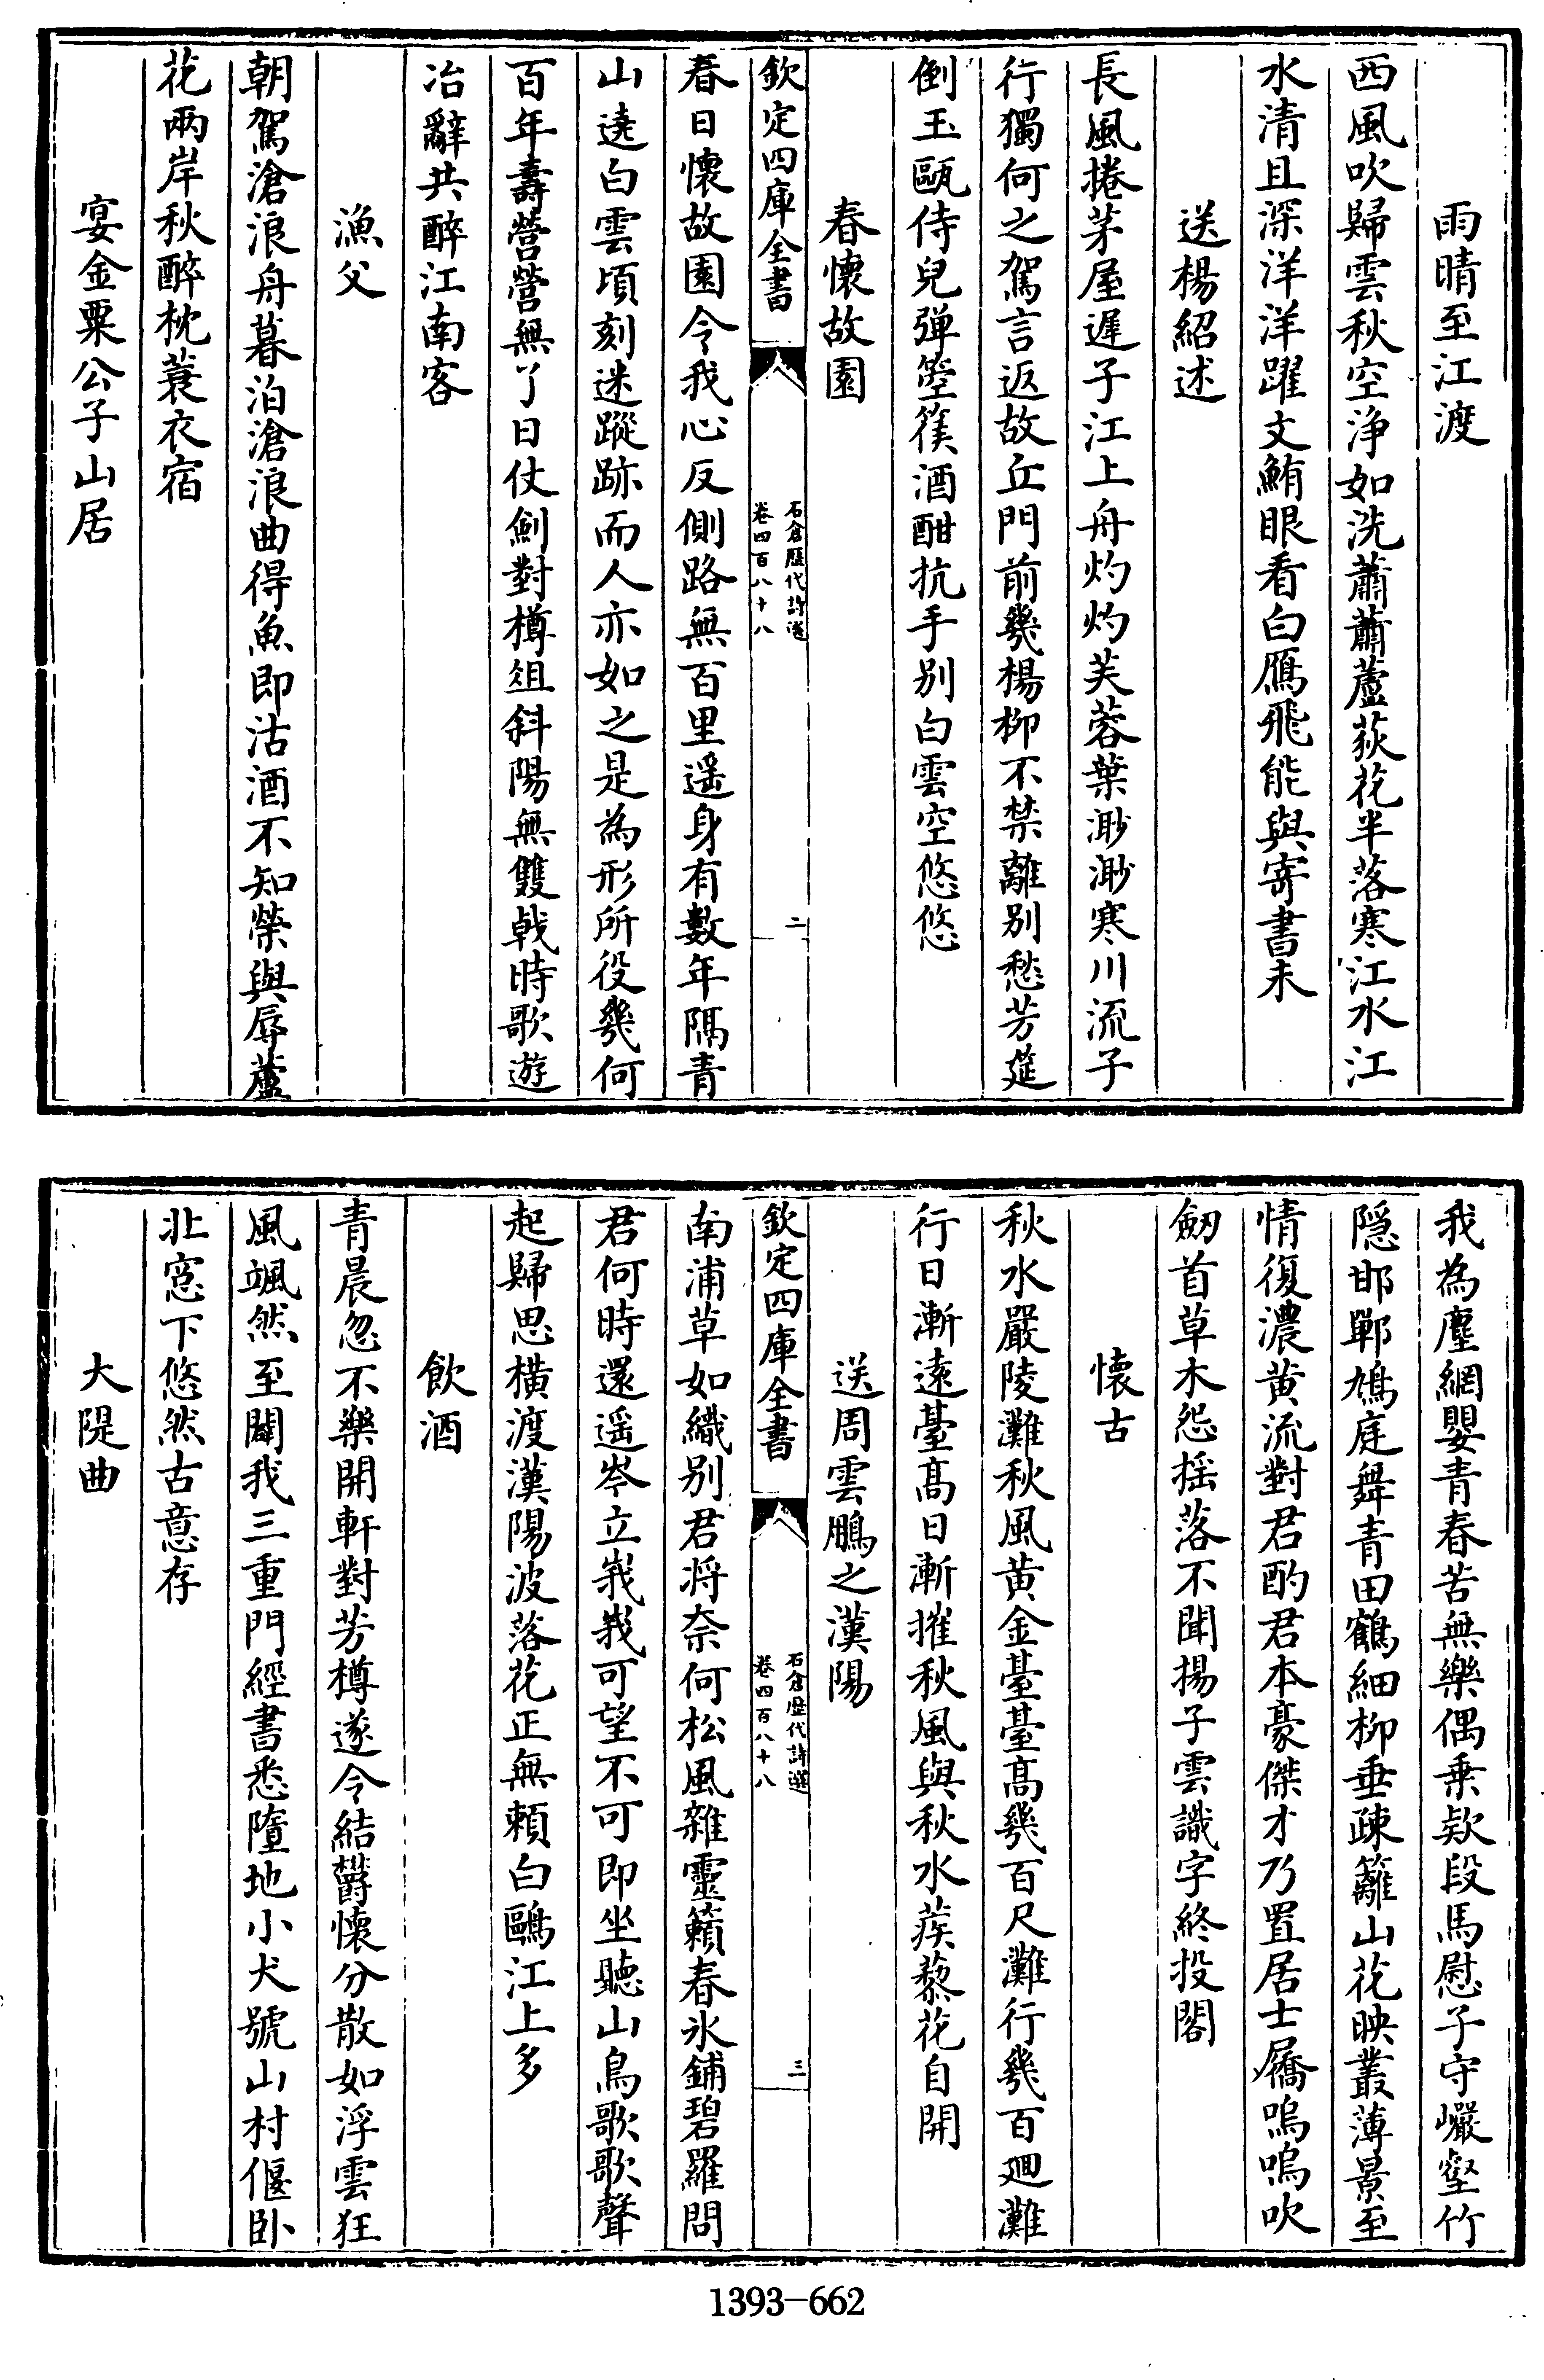 雨晴至江渡
西風吹歸雲秋空浄如洗蕭蕭蘆荻花半落寒江水江
水清且深洋洋躍文鮪眼看白鴈飛能與寄書未
送楊紹述
長風捲茅屋遲子江上舟灼灼芙蓉葉渺渺寒川流子
行獨何之駕言返故丘門前幾楊柳不禁離别愁芳筵
倒玉甌侍兒弹箜篌酒酣抗手别白雲空悠悠
春懷故園
欽定四庫全書
石倉歷代詩選
卷四百八十八
二
春日懷故園令我心反側路無百里遥身有數年隔青
山遶白雲頃刻迷蹤跡而人亦如之是為形所役幾何
百年壽營營無了日仗劍對樽俎斜陽無雙戟時歌遊
冶辭共醉江南客
漁父
朝駕滄浪舟暮泊滄浪曲得魚即沽酒不知榮與辱蘆
花兩岸秋醉枕蓑衣宿
宴金粟公子山居
我為塵網嬰青春苦無樂偶乗欵段馬慰子守巖壑竹
隠邯鄲鳩庭舞青田鶴細柳垂疎籬山花映叢薄景至
情復濃黄流對君酌君本豪傑才乃置居士屩嗚嗚吹
劒首草木怨揺落不聞揚子雲識字終投閣
懷古
秋水嚴陵灘秋風黄金臺臺髙幾百尺灘行幾百廻灘
行日漸逺臺髙日漸摧秋風與秋水蒺藜花自開
送周雲鵬之漢陽
欽定四庫全書
石倉歷代詩選
卷四百八十八
三
南浦草如織别君将奈何松風雜靈籟春氷鋪碧羅問
君何時還遥岑立峩峩可望不可即坐聽山鳥歌歌聲
起歸思横渡漢陽波落花正無頼白鷗江上多
飲酒
青晨忽不樂開軒對芳樽遂令結欝懷分散如浮雲狂
風颯然至闢我三重門經書悉墮地小犬號山村偃卧
北窓下悠然古意存
大隄曲
1393-662